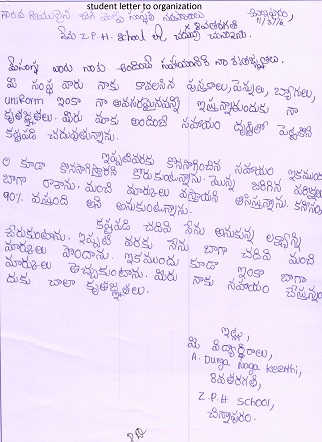 student letter to organization
చిన్నాపురం,
గౌరవ నీయులైన
నేను Z.P.H. School లో 8వతరగతి చదువు చున్నాను.
మీ సంస్థ వారు నాకు అందించే సహాయానికి నా కృతజ్ఞతలు.
మీ సంస్థ వారు నాకు కావలసిన పుస్తకాలు, పెన్నులు, బ్యాగులు,
uniform ఇంకా నా అవసరమైనవన్నీ ఇస్తున్నందుకు నా
కృతజ్ఞతలు. మీరు మాకు అందించే సహాయం దృష్టిలో పెట్టుకొని
కష్టపడి చదువుతున్నాను.
ఇప్పటివరకు కొనసాగించిన సహాయం ఇకముందు
కూడా కొనసాగిస్తారని కోరుకుంటున్నాను. మొన్న జరిగిన పరీక్షలు
బాగా రాశాను. మంచి మార్కులు వస్తాయని ఆశిస్తున్నాను. కనీసం
90% వస్తుంది అని అనుకుంటున్నాను.
కష్టపడి చదివి నేను అనుకున్న లక్ష్యాన్ని
చేరుకుంటాను. ఇప్పటి వరకు నేను బాగా చదివి మంచి
మార్కులు పొందాను. ఇకముందు కూడా ఇంకా బాగా
మార్కులు తెచ్చుకుంటాను. మీరు నాకు సహాయం చేస్తున్నం
దుకు చాలా కృతజ్ఞతలు.
ఇట్లు,
మీ విద్యార్థిరాలు,
A. Durga Naga Keerthi,
8వతరగతి,
Z.P.H SCHOOL,
చిన్నాపురం.